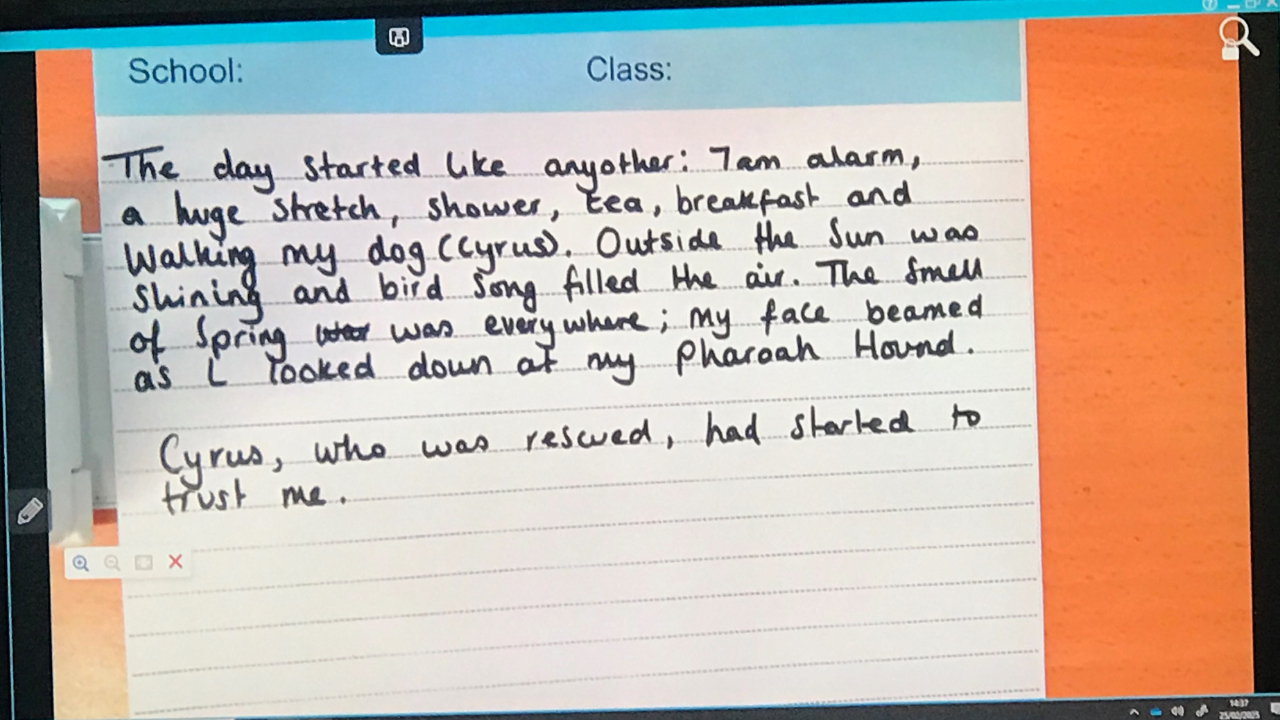 School: Class:
The day started like anyother: 7am alarm,
a huge stretch, shower, tea, breakfast and
Walking my dog (Cyrus). Outside the Sun was
Shining and bird song filled the air. The smell
of Spring was everywhere; my face beamed
as I looked down at my Pharoah Hound.
Cyrus, who was rescued, had started to
trust me.
14:37
25/02/2025